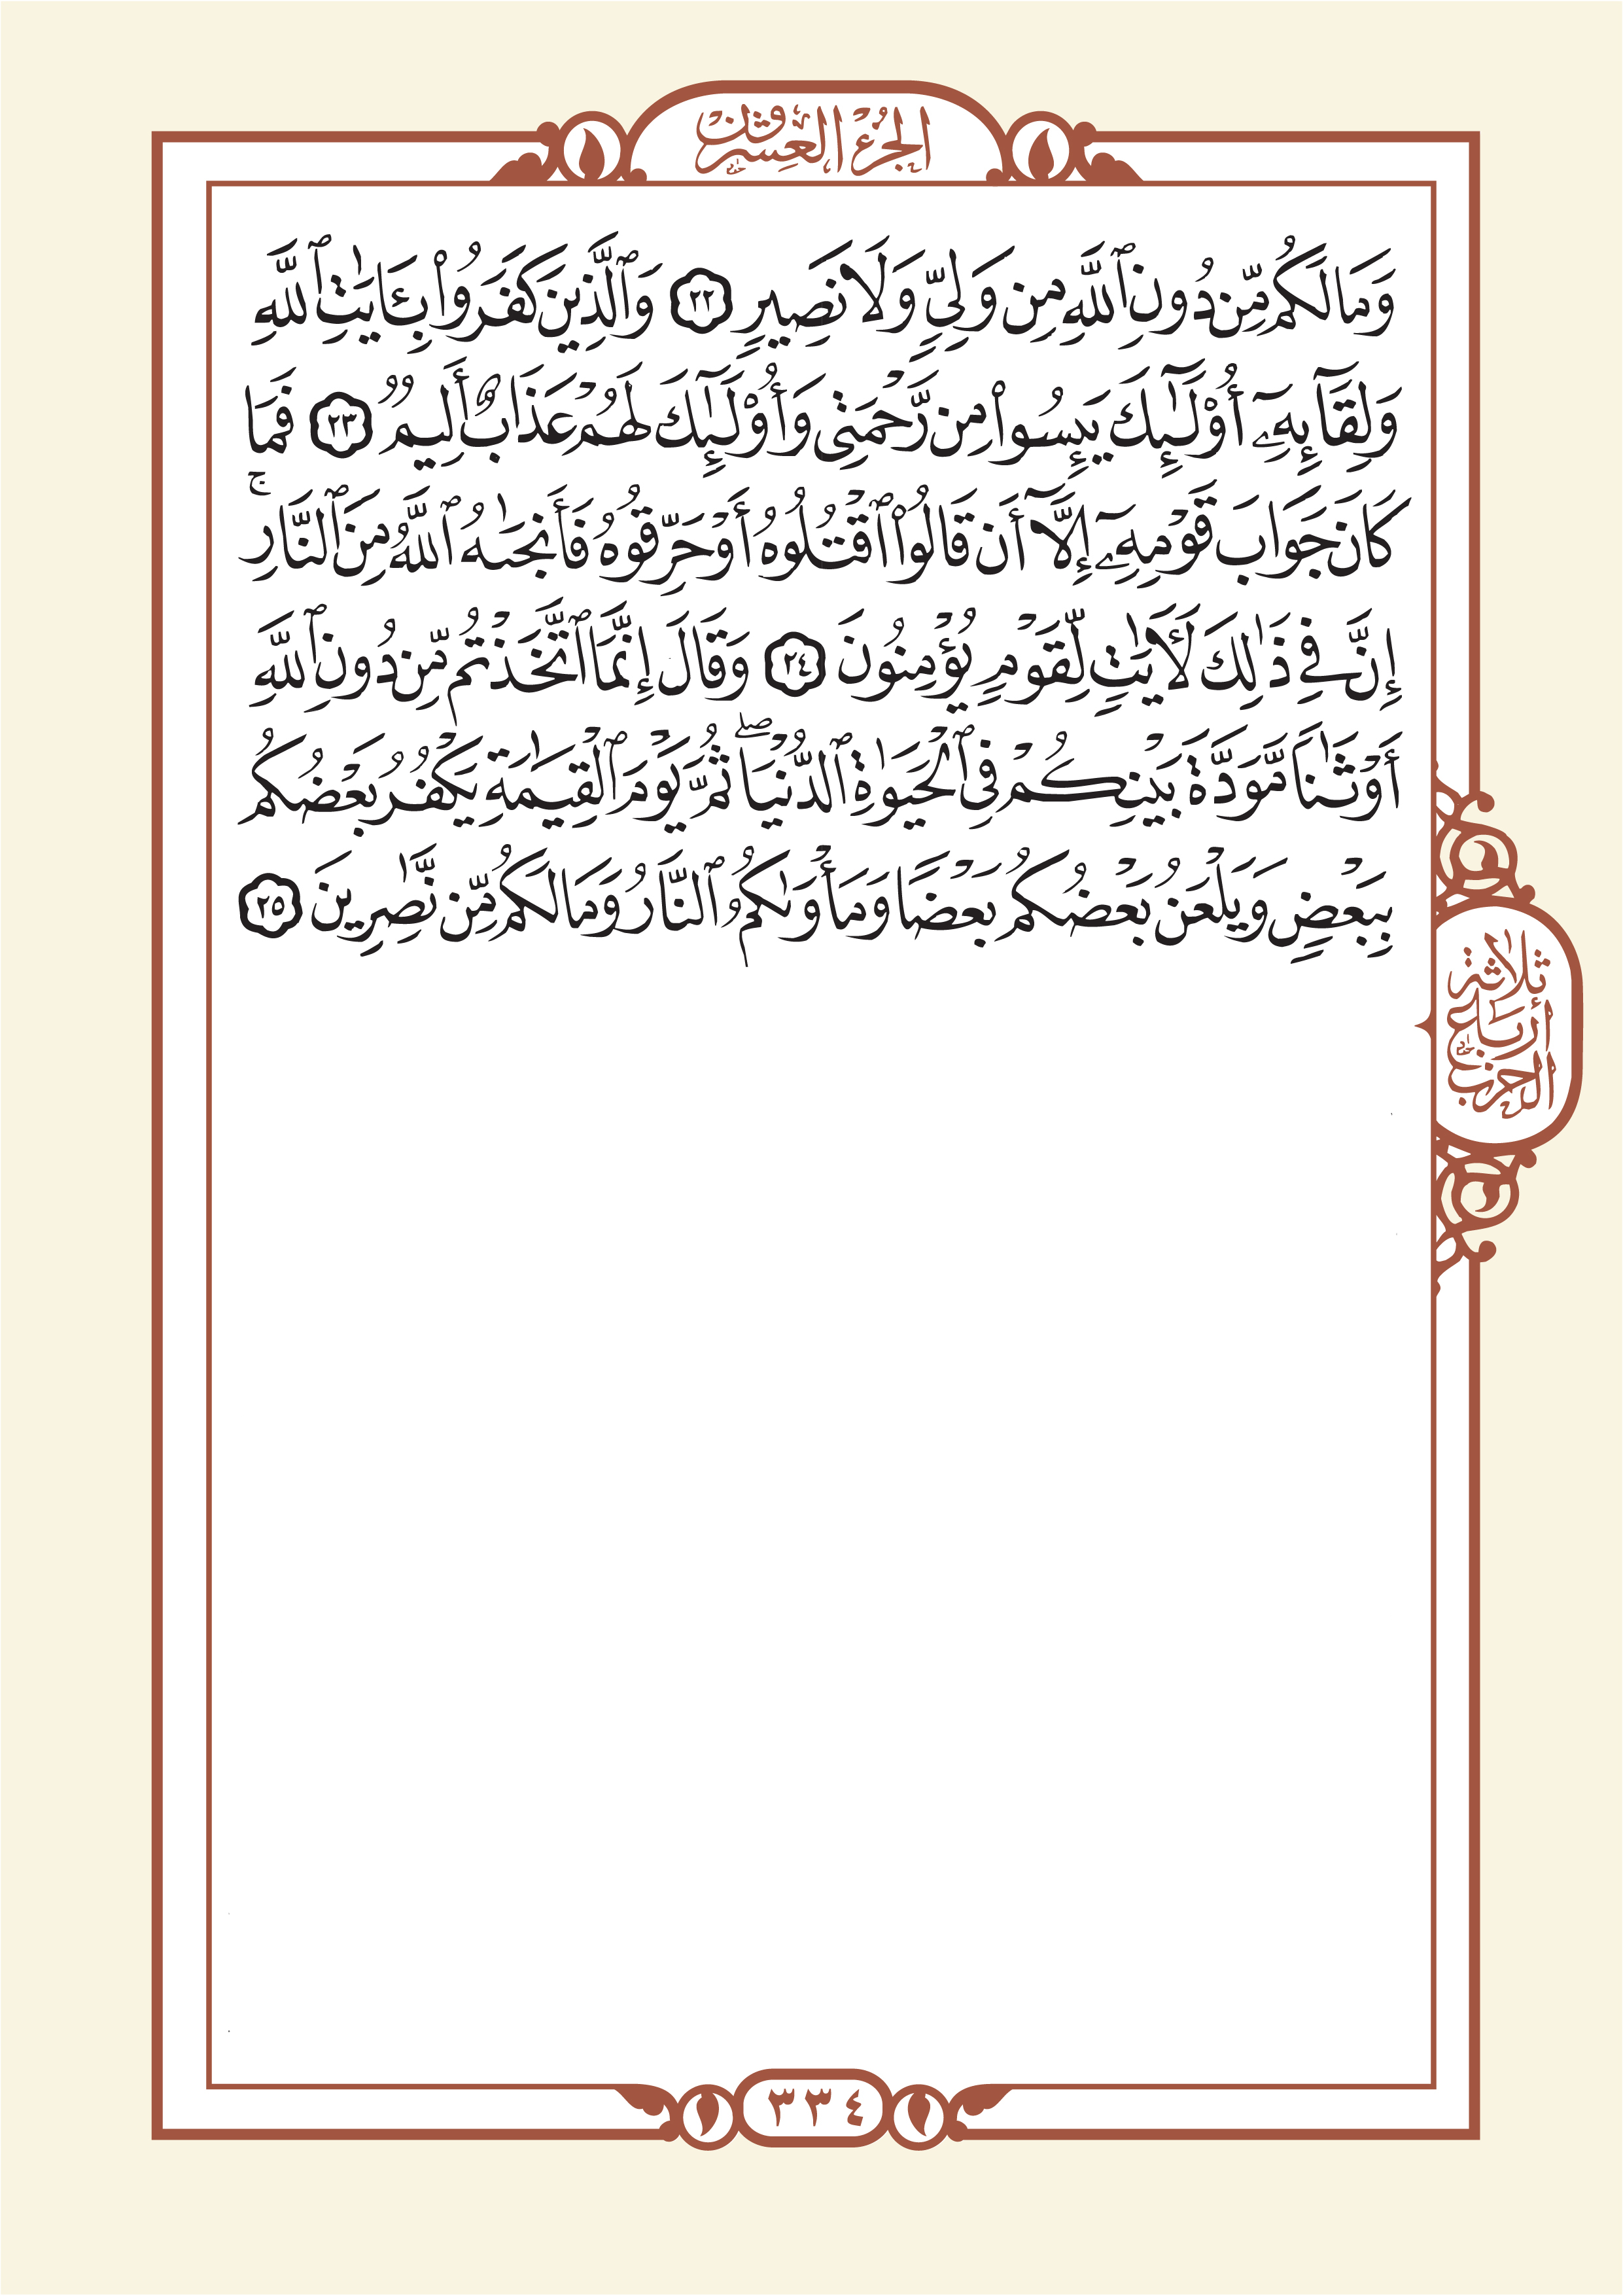 الجزء العشرون
وَمَا لَكُم مِّن دُونِ ٱللَّهِ مِن وَلِيٍّ وَلَا نَصِيرٍ ٢٢ وَٱلَّذِينَ كَفَرُوا۟ بِـَٔايَٰتِ ٱللَّهِ
وَلِقَآئِهِۦٓ أُو۟لَٰٓئِكَ يَئِسُوا۟ مِن رَّحْمَتِى وَأُو۟لَٰٓئِكَ لَهُمْ عَذَابٌ أَلِيمٌ ٢٣ فَمَا
كَانَ جَوَابَ قَوْمِهِۦٓ إِلَّآ أَن قَالُوا۟ ٱقْتُلُوهُ أَوْ حَرِّقُوهُ فَأَنجَىٰهُ ٱللَّهُ مِنَ ٱلنَّارِ ۚ
إِنَّ فِى ذَٰلِكَ لَأَيَٰتٍ لِّقَوْمٍ يُؤْمِنُونَ ٢٤ وَقَالَ إِنَّمَا ٱتَّخَذْتُم مِّن دُونِ ٱللَّهِ
أَوْثَٰنًا مَّوَدَّةَ بَيْنِكُمْ فِى ٱلْحَيَوٰةِ ٱلدُّنْيَا ۖ ثُمَّ يَوْمَ ٱلْقِيَٰمَةِ يَكْفُرُ بَعْضُكُم
بِبَعْضٍ وَيَلْعَنُ بَعْضُكُم بَعْضًا وَمَأْوَىٰكُمُ ٱلنَّارُ وَمَا لَكُم مِّن نَّٰصِرِينَ ٢٥
ثلاثة
أرباع
الحزب
٣٣٤